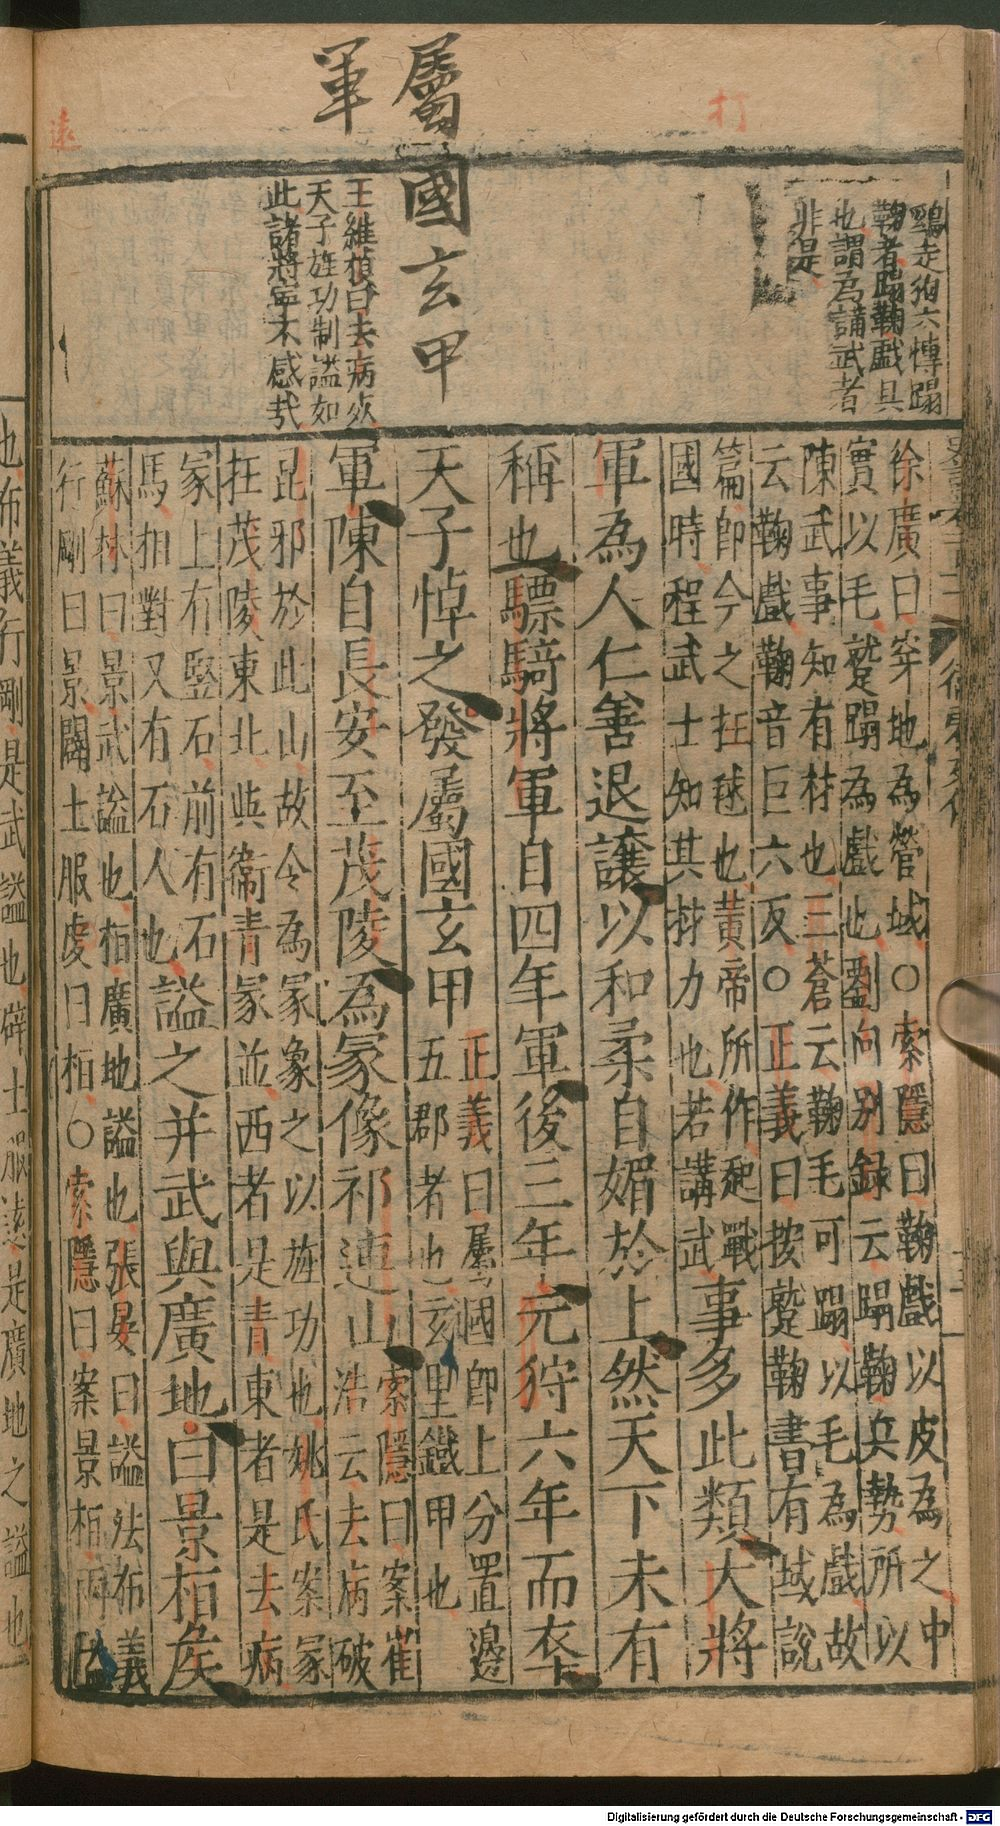 打
屬國玄甲
軍
遠
鷄走狗六愽蹋
鞠者蹋鞠戲具
也謂為講武者
非是
王維楨曰去病
天子旌功制謚如
此諸將寧不感㦲
徐廣曰穿地為營域○索隱曰鞠戲以皮為之中
實以毛蹵蹋為戲也劉向别録云蹋鞠兵勢所以
陳武事知有材也三蒼云鞠毛可蹋以毛為戲故
云鞠戲鞠音巨六反○正義曰按蹵鞠書有域說
篇即今之打毬也黃帝所作起戰
國時程武士知其材力也若講武事多此類大將
軍為人仁善退讓以和柔自媚於上然天下未有
稱也驃騎將軍自四年軍後三年元狩六年而卒
天子悼之發屬國玄甲
正義曰屬國即上分置邊
五郡者也玄里鐵甲也
軍陳自長安至茂陵為冢像祁連山
索隱曰案崔
浩云去病破
昆邪於此山故令為冢象之以旌功也姚氏案冢
在茂陵東北與衞青冢並西者是青東者是去病
冢上有竪石前有石
馬相對又有石人也
謚之并武與廣地曰景桓侯
蘇林曰景武謚也桓廣地謚也張晏曰謚法布義
行剛曰景闢土服遠曰桓○索隱曰案景桓兩謚
也布義行剛是武謚也辟土服遠是廣地之謚也
Digitalisierung gefördert durch die Deutsche Forschungsgemeinschaft - DFG